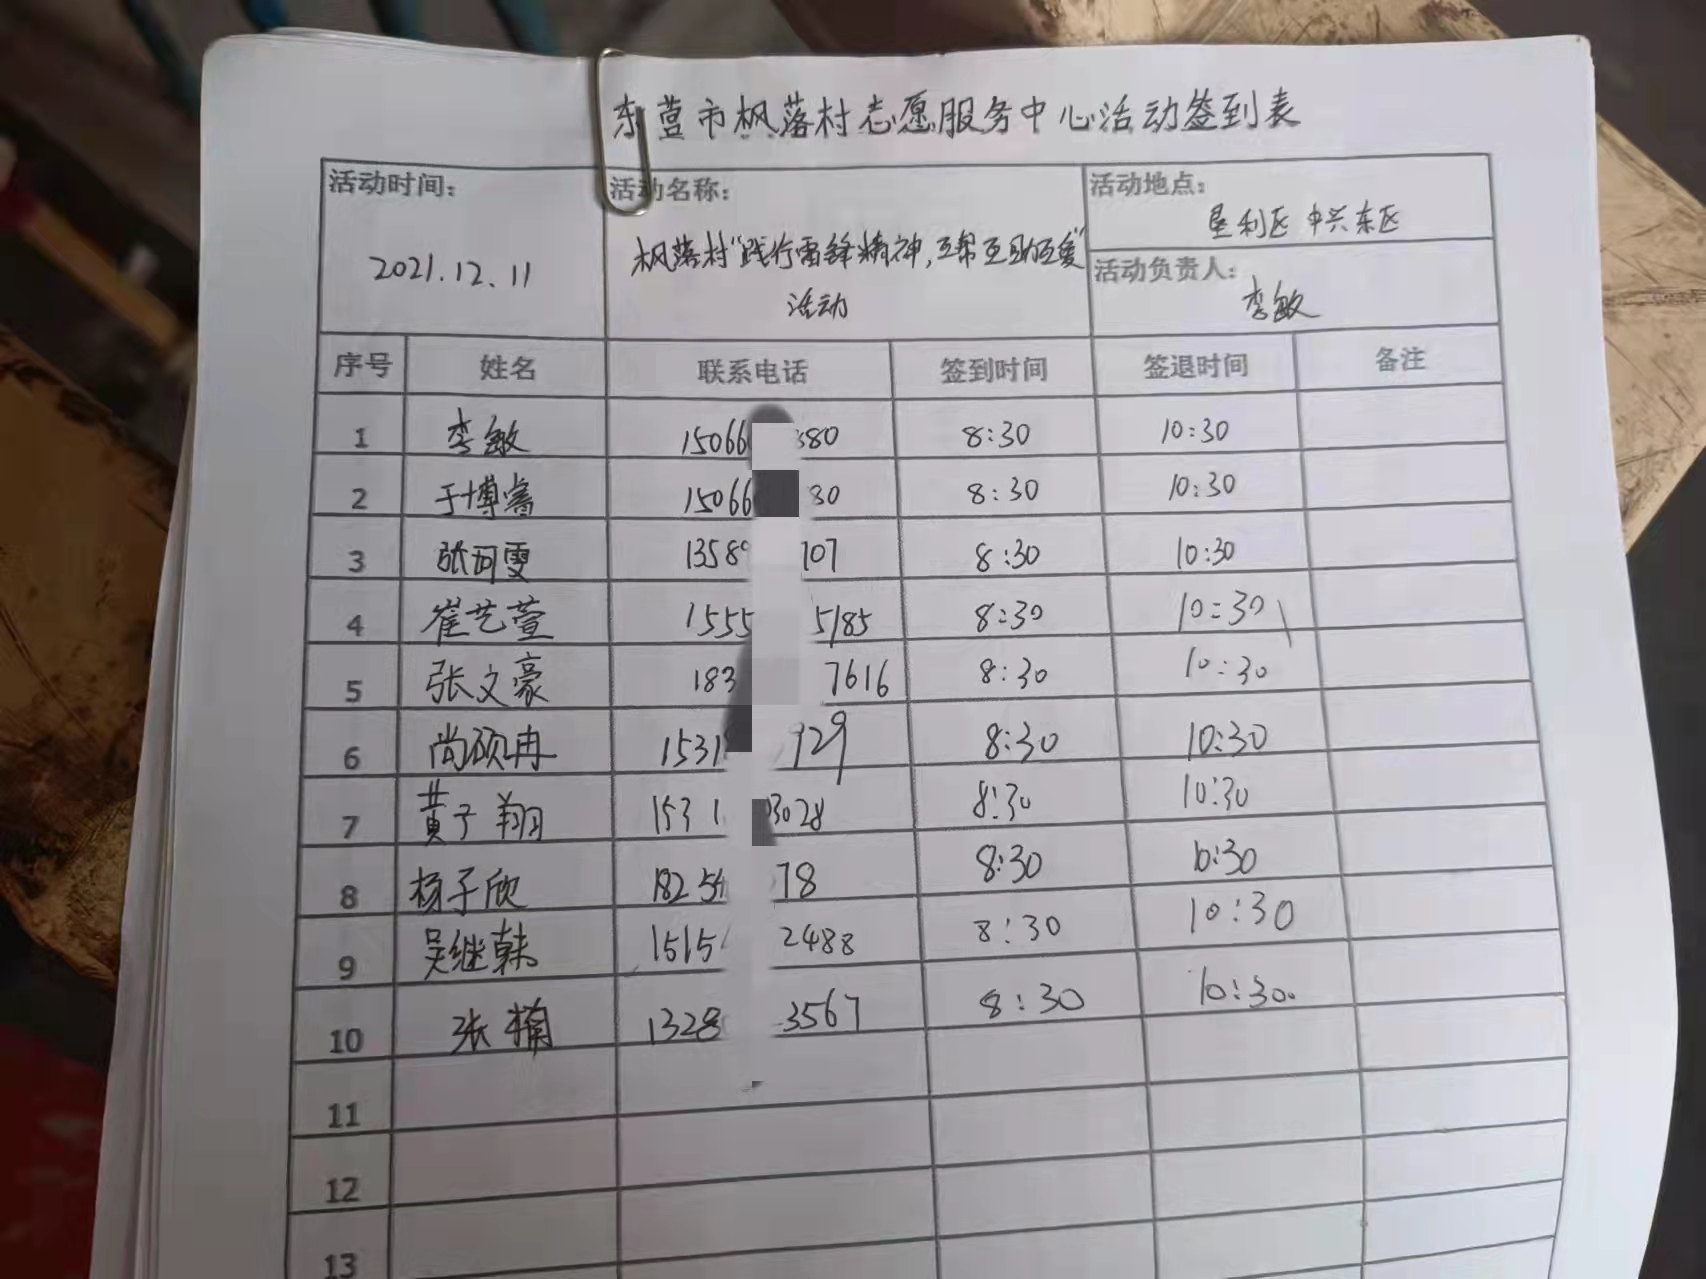 东营市枫落村志愿服务中心活动签到表
活动时间: 活动名称: 活动地点:
垦利区 中兴东区
2021.12.11 枫落村"践行雷锋精神,互帮互助互爱"
活动
活动负责人:
李敏
序号 姓名 联系电话 签到时间 签退时间 备注
1 李敏 15066 380 8:30 10:30
2 于博睿 15066 80 8:30 10:30
3 张珂雯 1358 107 8:30 10:30
4 崔艺萱 1555 5185 8:30 10:30
5 张文豪 183 7616 8:30 10:30
6 尚硕冉 1531 929 8:30 10:30
7 黄子翔 1531 3028 8:30 10:30
8 杨子欣 1825 78 8:30 10:30
9 吴继韩 1515 2488 8:30 10:30
10 张楠 1328 3567 8:30 10:30
11
12
13